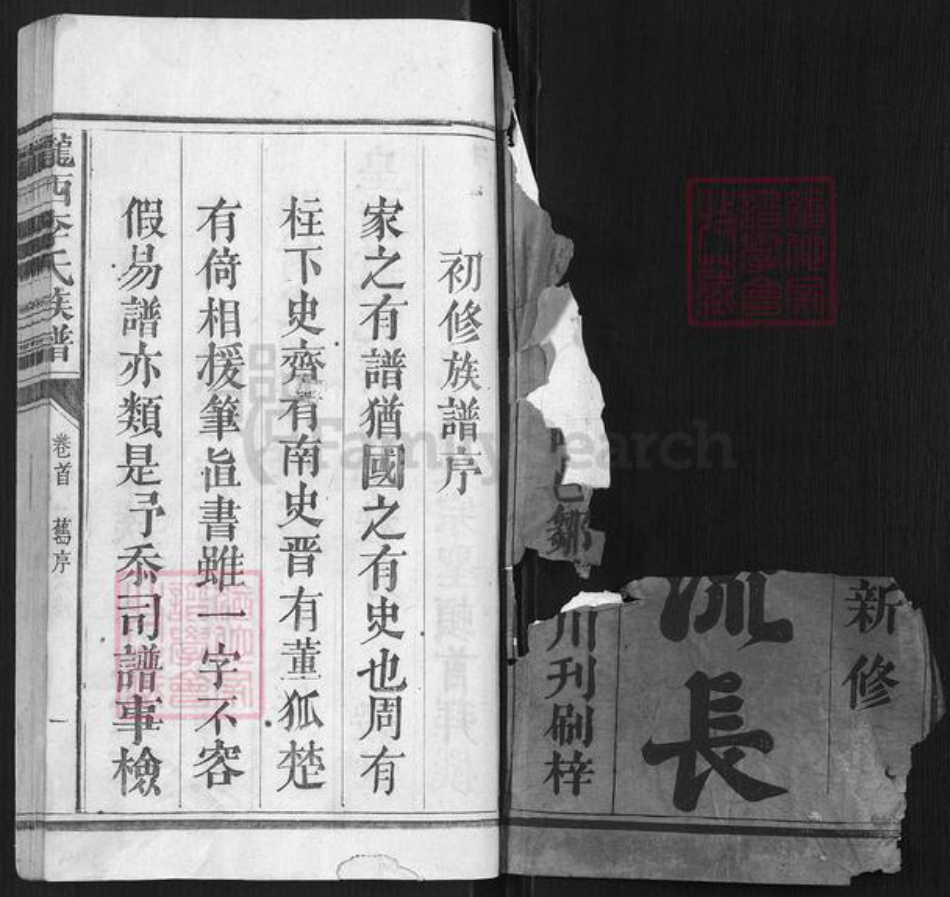 新修
流長
川刊刷梓
邑鄒
初修族譜序
家之有譜猶國之有史也周有
柱下史齊有南史晋有董狐楚
有倚相援筆直書雖一字不容
假易譜亦類是予忝司譜事檢
隴西李氏族譜
卷首 舊序 一
FamilySearch